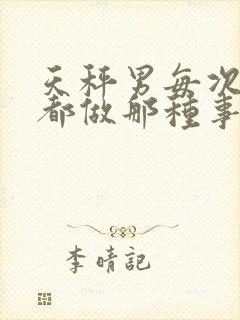 天秤男每次
都做那種事
李晴記